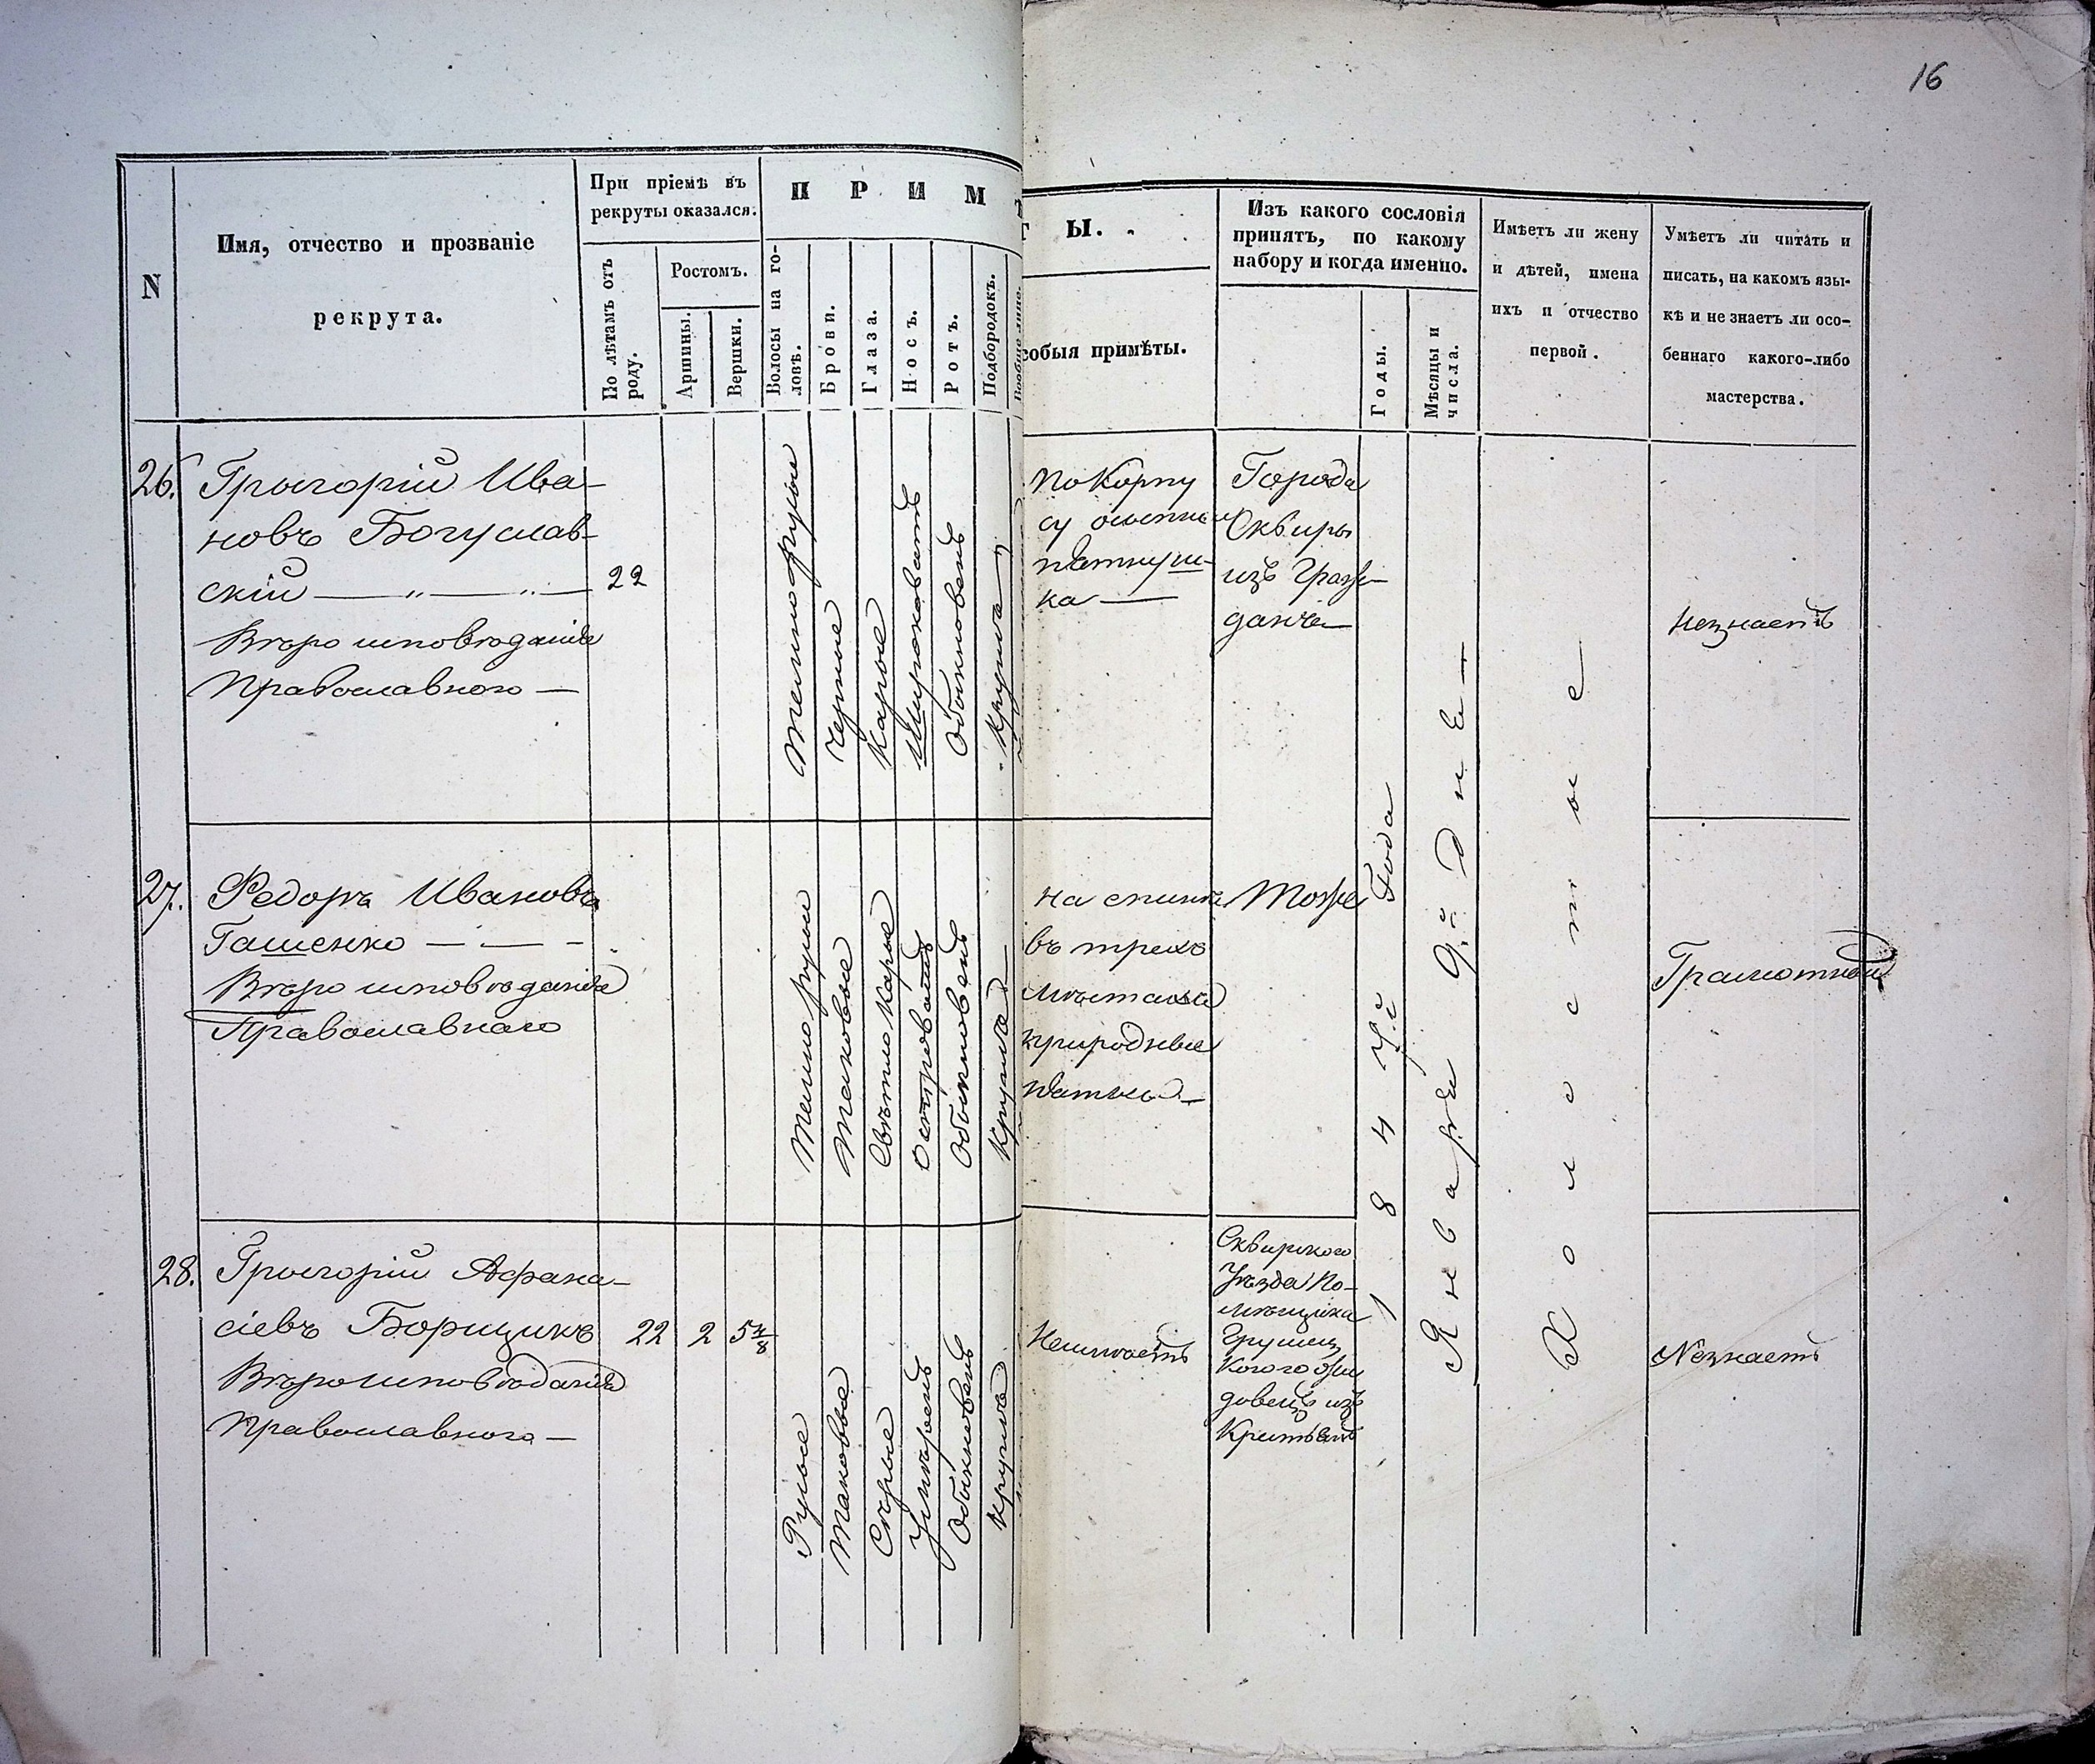 16
N
Имя, отчество и прозваніе
рекрута.
При пріемѣ въ
рекруты оказался.
По лѣтамъ отъ
роду.
Ростомъ.
Аршины.
Вершки.
П Р И М Ѣ
Волосы на го-
ловѣ.
Брови.
Глаза.
Носъ.
Ротъ.
Подбородокъ.
Вообще лице.
Т Ы.
собыя примѣты.
Изъ какого сословія
принятъ, по какому
набору и когда именно.
Годы.
Мѣсяцы и
числа.
Имѣетъ ли жену
и дѣтей, имена
ихъ и отчество
первой.
Умѣетъ ли читать и
писать, на какомъ язы-
кѣ и не знаетъ ли осо-
беннаго какого-либо
мастерства.
26.
Григорій Ива-
новъ Богуслав-
скій — „ — „ —
Вѣроисповѣданія
Православного —
22
Темнорусые
Черные
Карые
Широковатъ
Обыкновенъ
Кругла
по Корпу
су
ка —
Города
Сквиры
изъ Граж-
данъ —
незнаетъ
27.
Федоръ Ивановъ
Гашенко — — -
Вѣроисповѣданія
Православнаго
Темнорусые
Таковые
Свѣтло Карые
Островатъ
Обыкновенъ
Кругла
на спинѣ
въ трехъ
мѣстахъ
природные
пятны —
Тоже
Грамотный
28.
Григорій Афана-
сіевъ Борщикъ
Вѣроисповѣданія
Православного —
22
2
5 4/8
Русые
Таковые
Сѣрые
Умѣренъ
Обыкновенъ
Кругла
Неимѣетъ
Сквирского
Уѣзда По-
мѣщика
изъ
Незнаетъ
1 8 4 4.й Года
Января 9.й дне —
Холостые